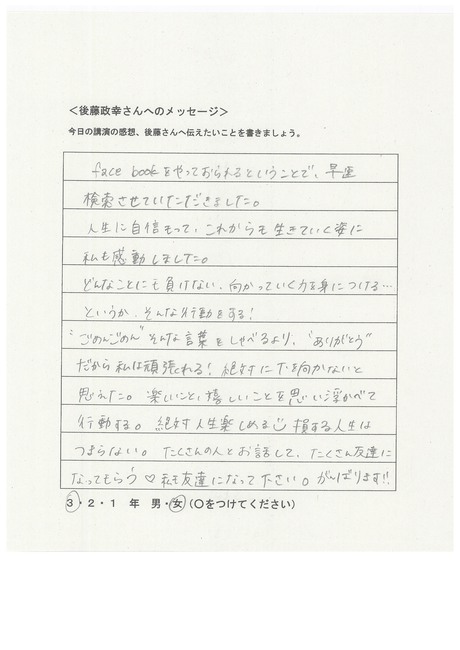 ＜後藤政幸さんへのメッセージ＞
今日の講演の感想、後藤さんへ伝えたいことを書きましょう。
face bookをやっておられるということで、早速
検索させていただきました。
人生に自信もって、これからも生きていく姿に
私も感動しました。
どんなことにも負けない、向かっていく力を身につける…
というか、そんな行動をする！
"ごめんごめん" そんな言葉をしゃべるより、"ありがとう"
だから私は頑張れる！ 絶対に下を向かないと
思えた。楽しいこと、嬉しいことを思い浮かべて
行動する。絶対人生楽しめる 損する人生は
つまらない。たくさんの人とお話して、たくさん友達に
なってもらう♡私も友達になって下さい。がんばります!!
3・2・1 年 男・女（○をつけてください）